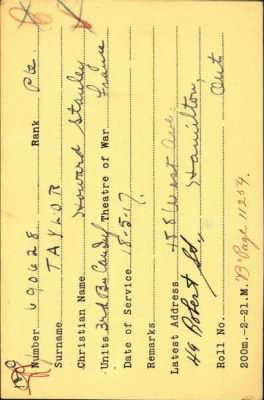 Number 690628 Rank Pte
Surname TAYLOR
Christian Name Howard Stanley
Units 3rd Bn Can Inf Theatre of War France
Date of Service 18-5-17
Remarks
Latest Address 158 West Ave.
49 Robert St. Hamilton,
Ont
Roll No. "B" Page 11259.
200m.-2-21.M.